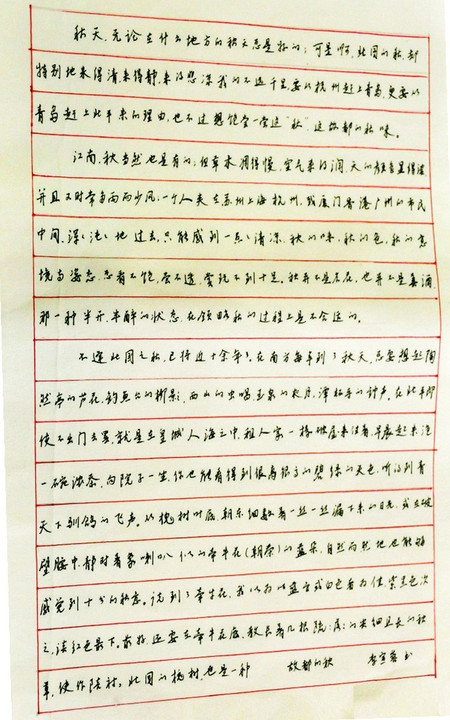 秋天，无论在什么地方的秋天总是好的；可是啊，北国的秋，却
特别地来得清，来得静，来得悲凉。我的不远千里，要从杭州赶上青岛，更要从
青岛赶上北平来的理由，也不过想饱尝一尝这“秋”，这故都的秋味。
江南，秋当然也是有的；但草木凋得慢，空气来得润，天的颜色显得淡，
并且又时常多雨而少风；一个人夹在苏州上海杭州，或厦门香港广州的市民
中间，浑浑沌沌地过去，只能感到一点点清凉，秋的味，秋的色，秋的意
境与姿态，总看不饱，尝不透，赏玩不到十足。秋并不是名花，也并不是美酒，
那一种半开，半醉的状态，在领略秋的过程上是不合适的。
不逢北国之秋，已将近十余年了。在南方每年到了秋天，总要想起陶
然亭的芦花，钓鱼台的柳影，西山的虫唱，玉泉的夜月，潭柘寺的钟声。在北平即
使不出门去罢，就是在皇城人海之中，租人家一椽破屋来住着，早晨起来，泡
一碗浓茶，向院子一坐，你也能看得到很高很高的碧绿的天色，听得到青
天下驯鸽的飞声。从槐树叶底，朝东细数着一丝一丝漏下来的日光，或在破
壁腰中，静对着象喇叭似的牵牛花（朝荣）的蓝朵，自然而然地也能够
感觉到十分的秋意。说到了牵牛花，我以为以蓝色或白色者为佳，紫黑色次
之，淡红色最下。最好，还要在牵牛花底，教长着几根疏疏落落的尖细且长的秋
草，使作陪衬。北国的槐树，也是一种 故都的秋 书